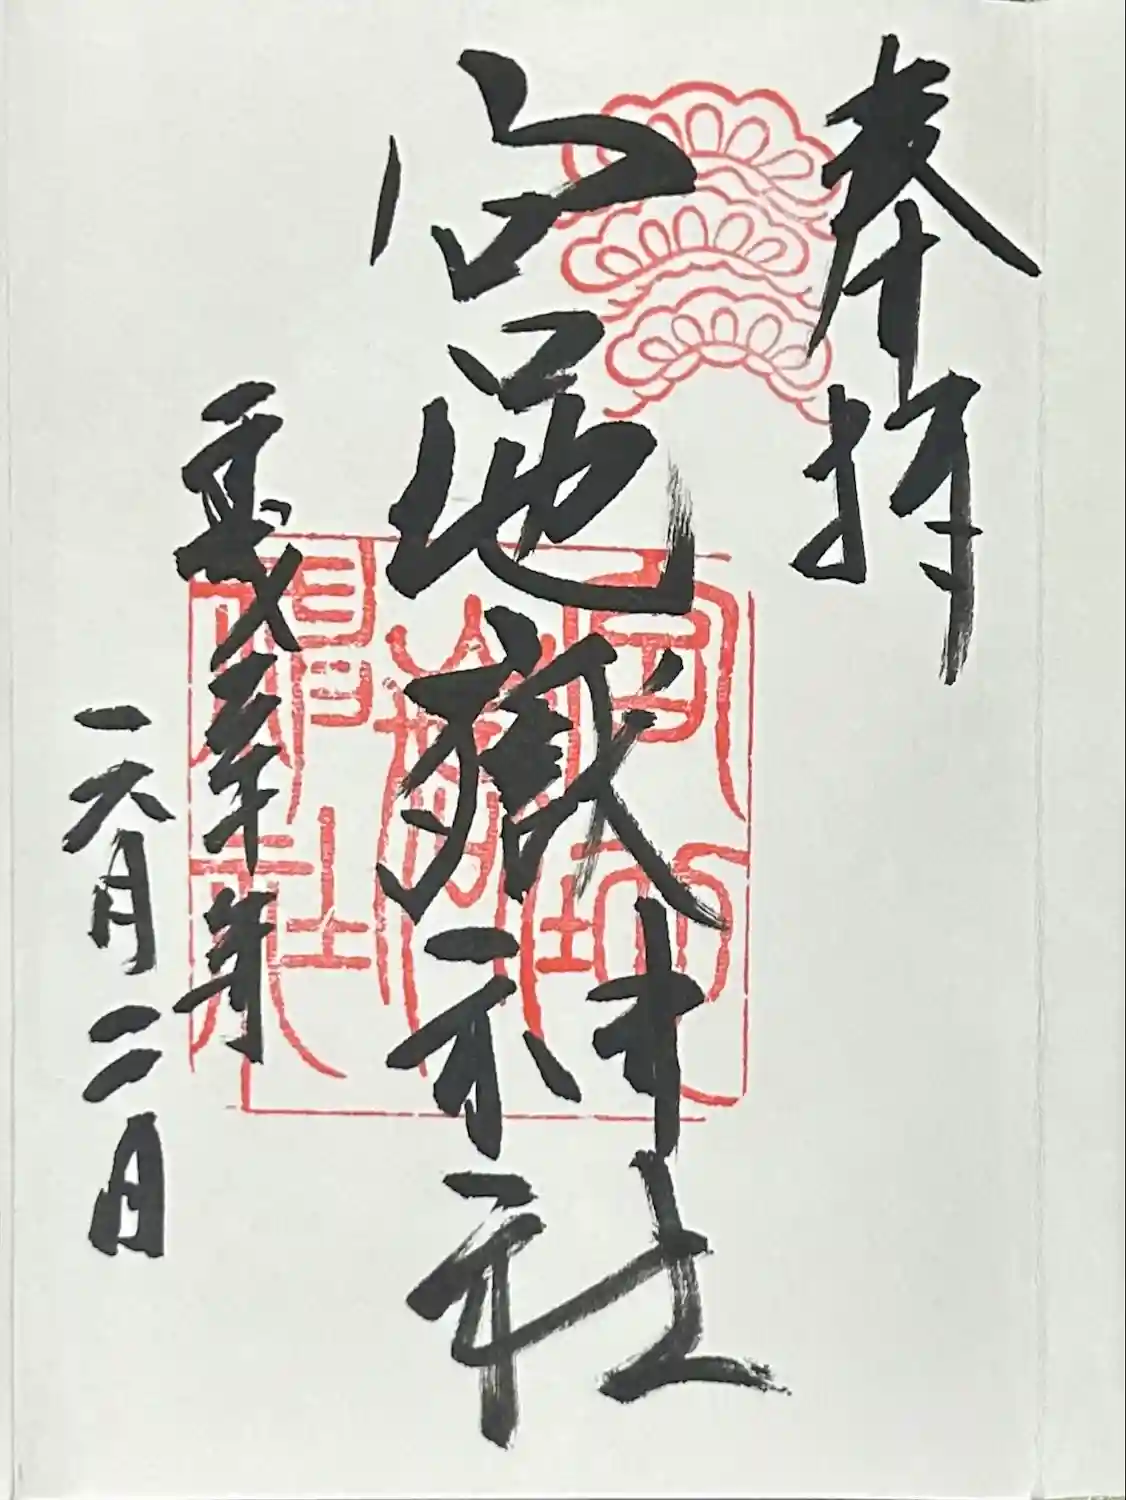 奉拝
宮地嶽神社
平成三十年
六月二日
宮地
嶽
神社